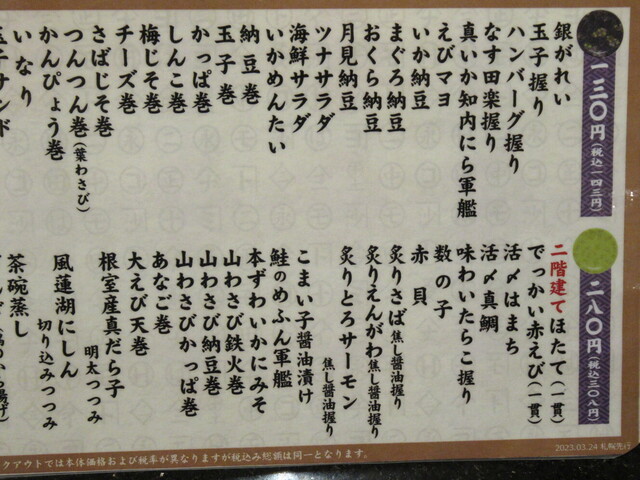 一三〇円(税込一四三円)
銀がれい
玉子握り
ハンバーグ握り
なす田楽握り
真いか知内にら軍艦
えびマヨ
いか納豆
まぐろ納豆
おくら納豆
月見納豆
ツナサラダ
海鮮サラダ
いかめんたい
納豆巻
玉子巻
かっぱ巻
しんこ巻
梅じそ巻
チーズ巻
さばじそ巻
つんつん巻(葉わさび)
かんぴょう巻
いなり
玉子サンド
二八〇円(税込三〇八円)
二階建てほたて(一貫)
でっかい赤えび(一貫)
活〆はまち
活〆真鯛
味わいたらこ握り
数の子
赤貝
炙りさば焦し醤油握り
炙りえんがわ焦し醤油握り
炙りとろサーモン
焦し醤油握り
こまい子醤油漬け
鮭のめふん軍艦
本ずわいかにみそ
山わさび鉄火巻
山わさび納豆巻
山わさびかっぱ巻
あなご巻
大えび天巻
根室産真だら子
明太つつみ
風蓮湖にしん
切り込みつつみ
茶碗蒸し
クアウトでは本体価格および税率が異なりますが税込み総額は同一となります。
2023.03.24 札幌先行